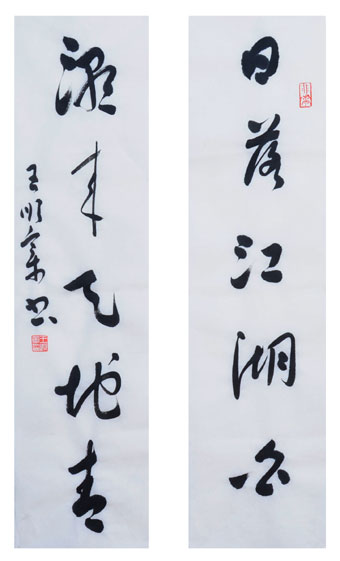 日落江湖白
潮来天地青
王顺书